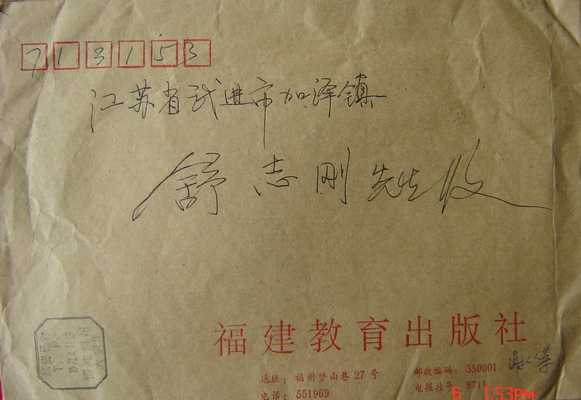 713153
江苏省武进市加泽镇
舒志刚先生收
福建教育出版社
地址：福州梦山巷27号 邮政编码：350001
电话：551969 电报挂号：8711
1:53PM